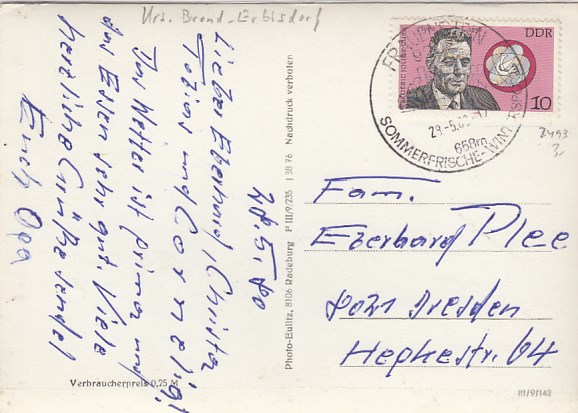 Krs. Brand-Erbisdorf
28.5.80
Lieber Eberhard, Christa,
Tobias und Cornelia!
Das Wetter ist prima und
das Essen sehr gut. Viele
herzliche Grüße sendet
Euch Opa
Verbraucherpreis 0,25 M
Photo-Eulitz, 8106 Radeburg P III/9/235 J 38 76 Nachdruck verboten
DDR
10
FRAUENSTEIN
29.-5.80
658m
SOMMERFRISCHE-WINTERSPORT
Fam.
Eberhard Plee
8021 Dresden
Hepkestr. 64
III/9/142